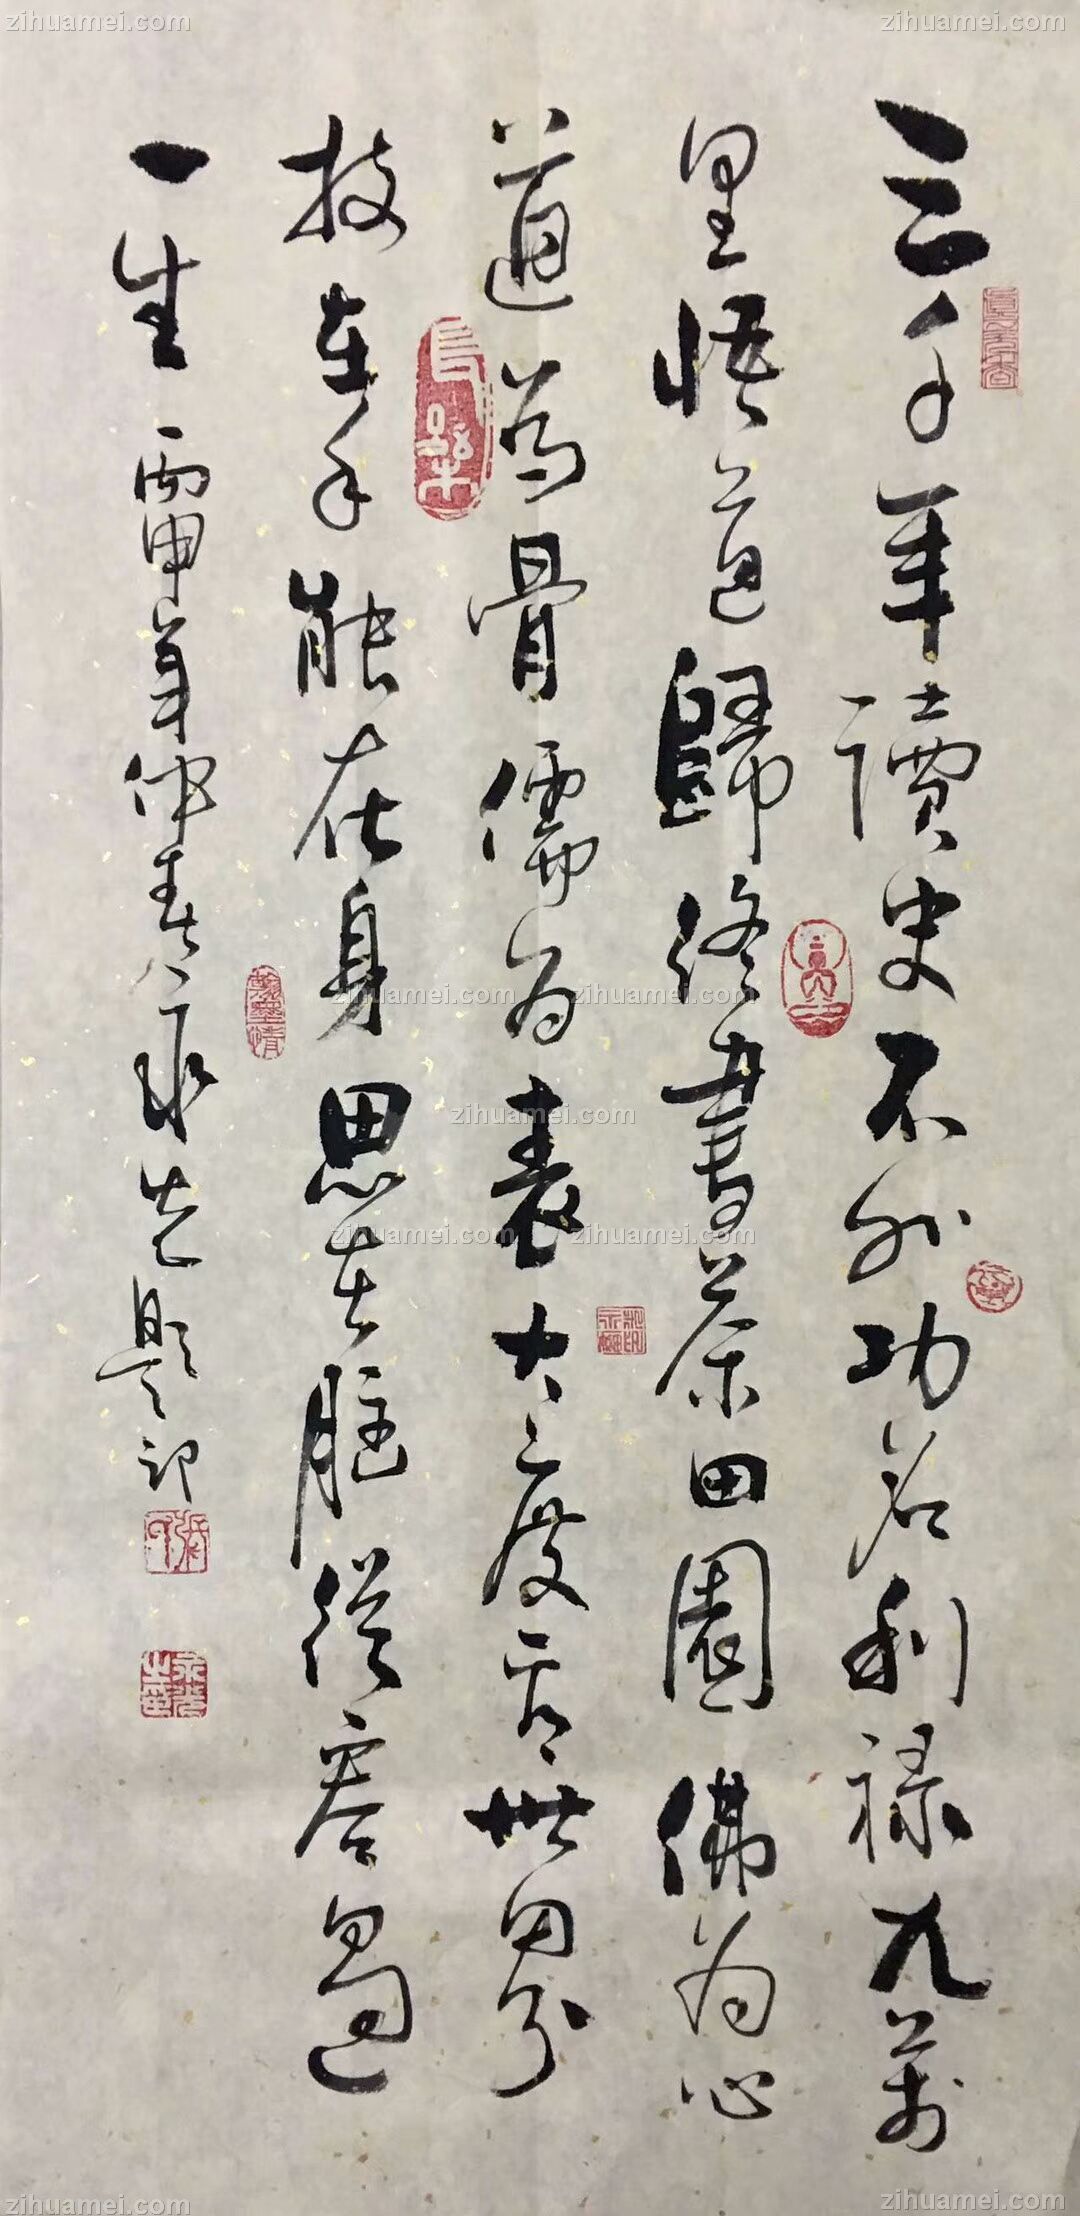 zihuamei.com
zihuamei.com
三千年讀史不外功名利禄九萬
里悟道歸終書茶田園佛為心
道為骨儒為表大度看世界
技在手能在身思在腦從容過
一生 丙申年仲春永光題記
zihuamei.com
zihuamei.com
zihuamei.com
zihuamei.com
zihuamei.com
zihuamei.com
zihuamei.com